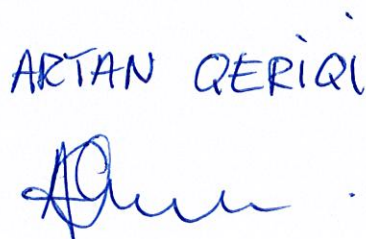 ARTAN QERIQI